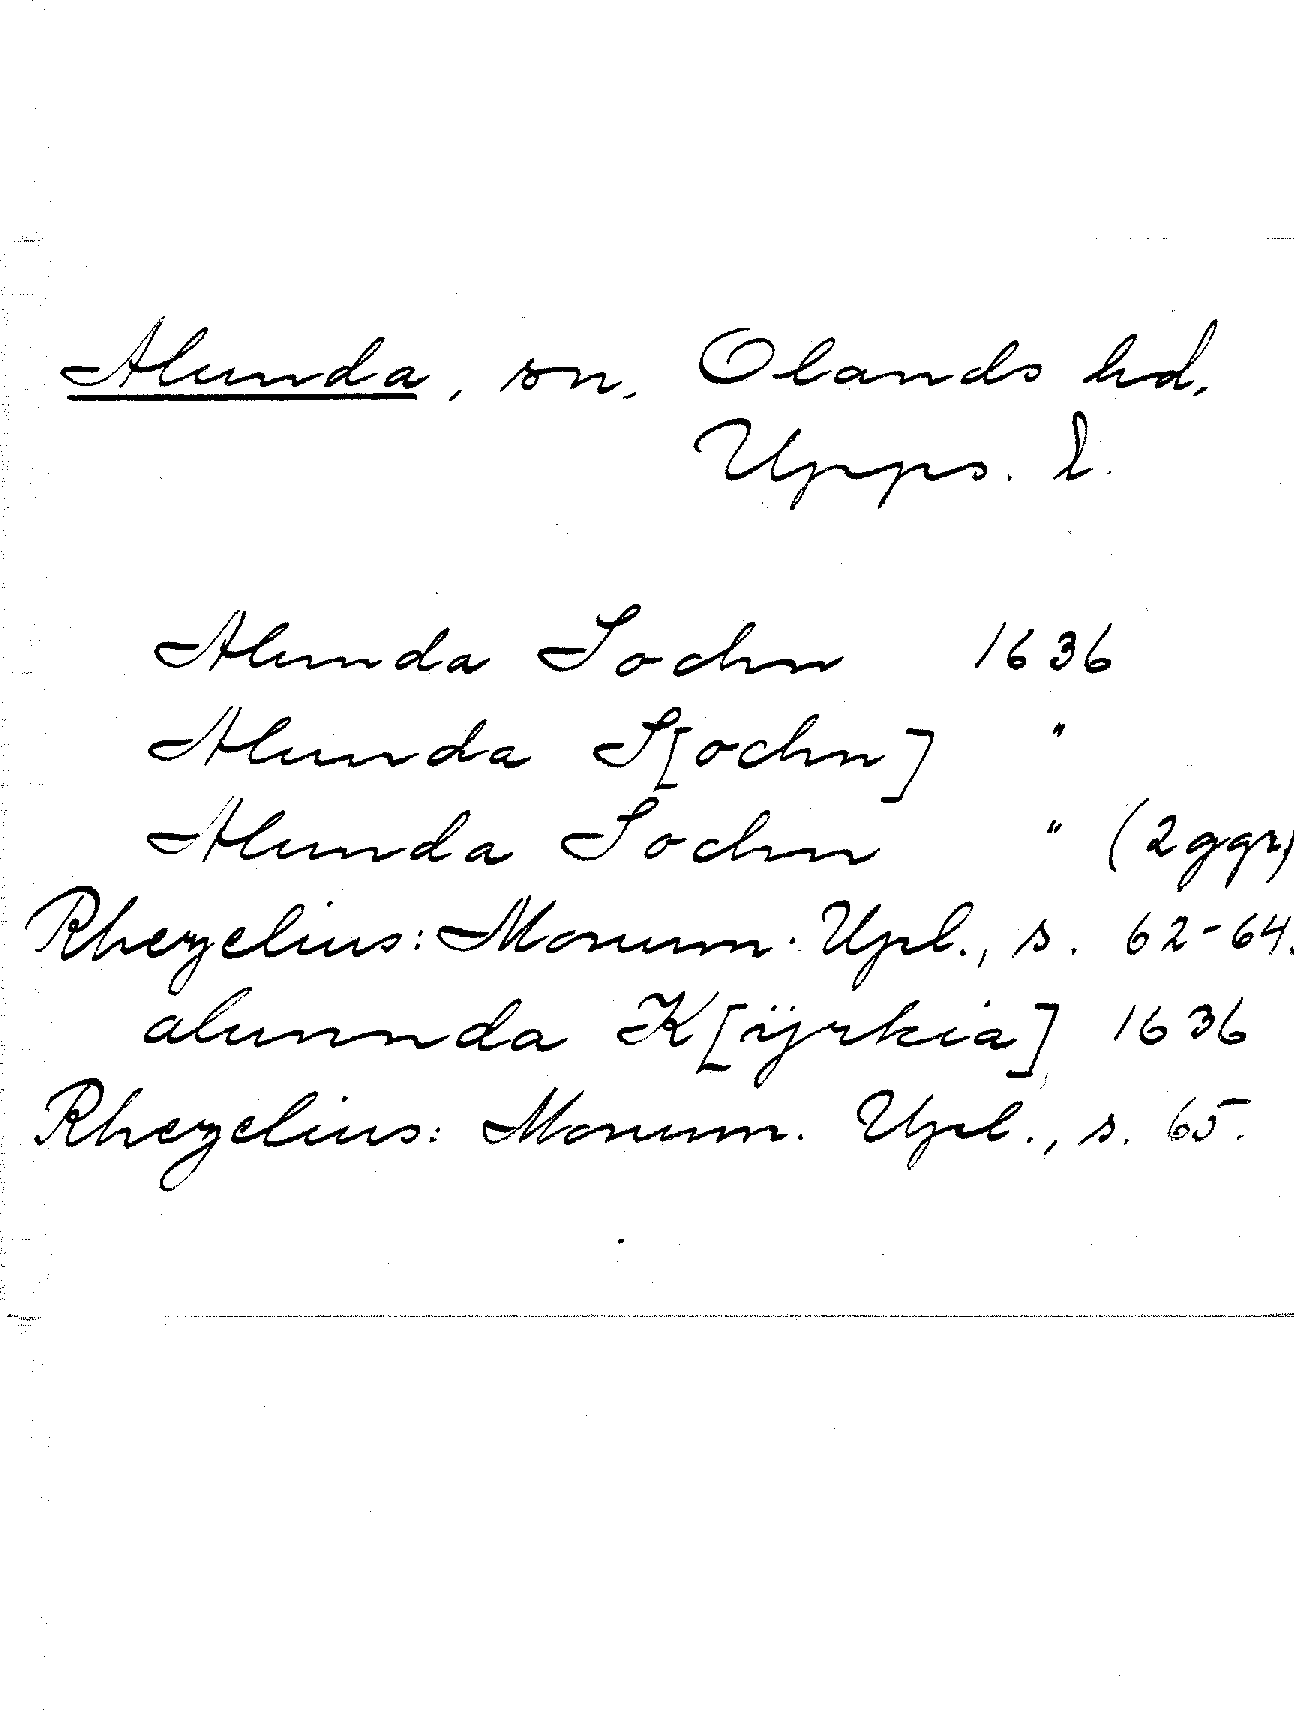 Alunda, sn, Olands hd,
Upps. l.
Alunda Sochn 1636
Alunda S[ochn] "
Alunda Sochn " (2ggr)
Rhezelius: Monum. Upl., s. 62-64.
alunnda K[ÿrkia] 1636
Rhezelius: Monum. Upl., s. 65.